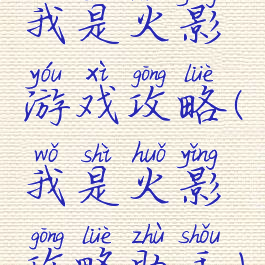 我是火影
yóu xì gōng lüè
游戏攻略(
wǒ shì huǒ yǐng
我是火影
gōng lüè zhù shǒu
攻略助手)